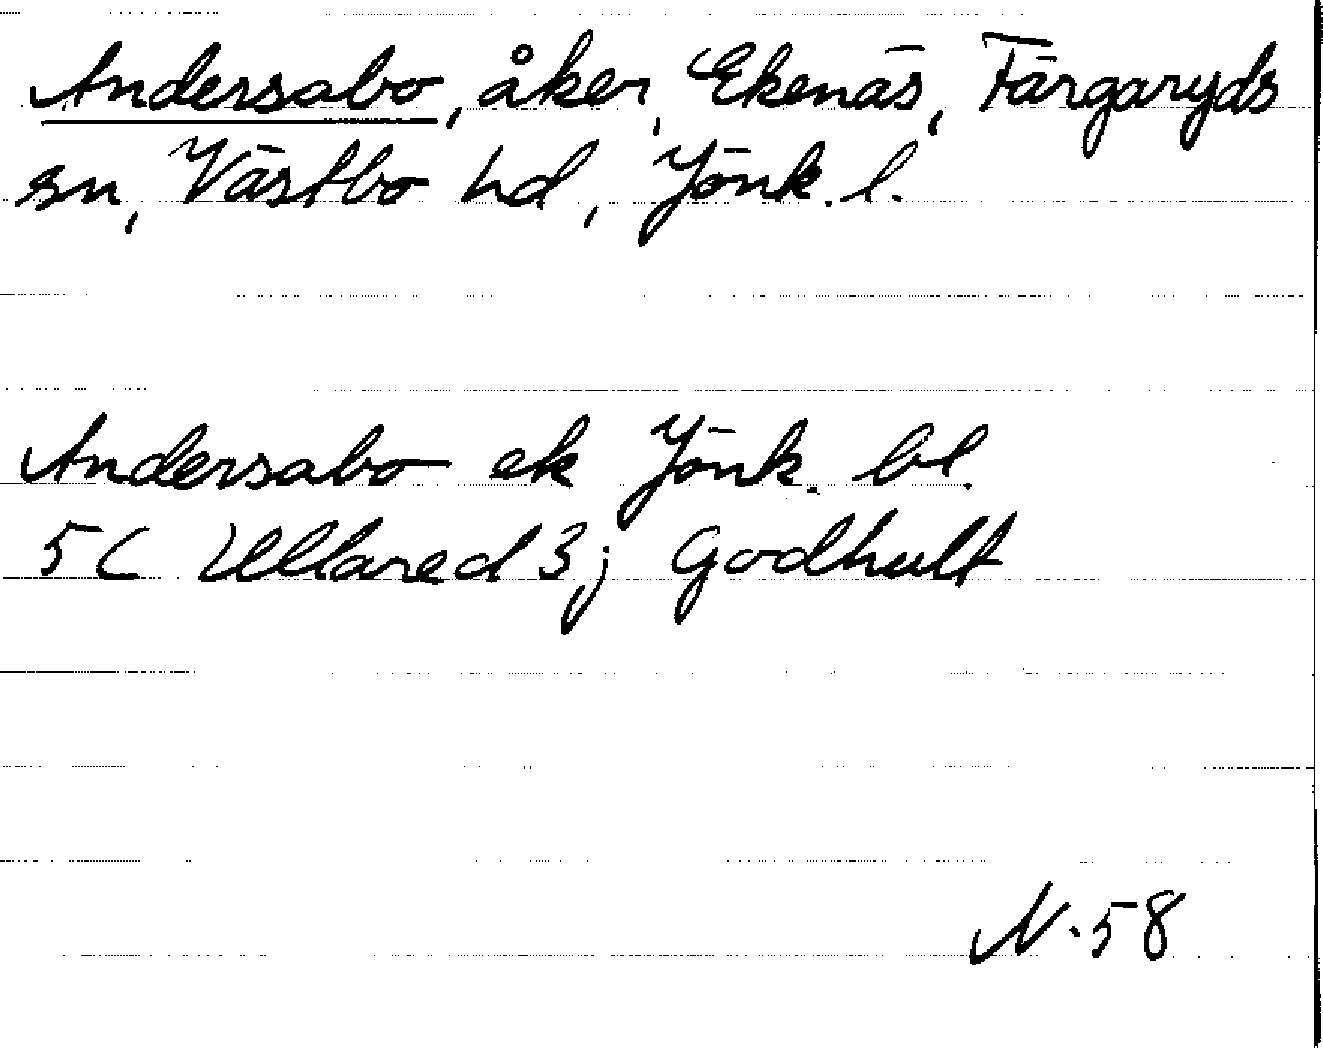 Andersabo, åker, Ekenäs, Färgaryds
sn, Västbo hd, Jönk. l.
Andersabo ek Jönk. bl.
5C Ullared 3; Godhult
N. 58